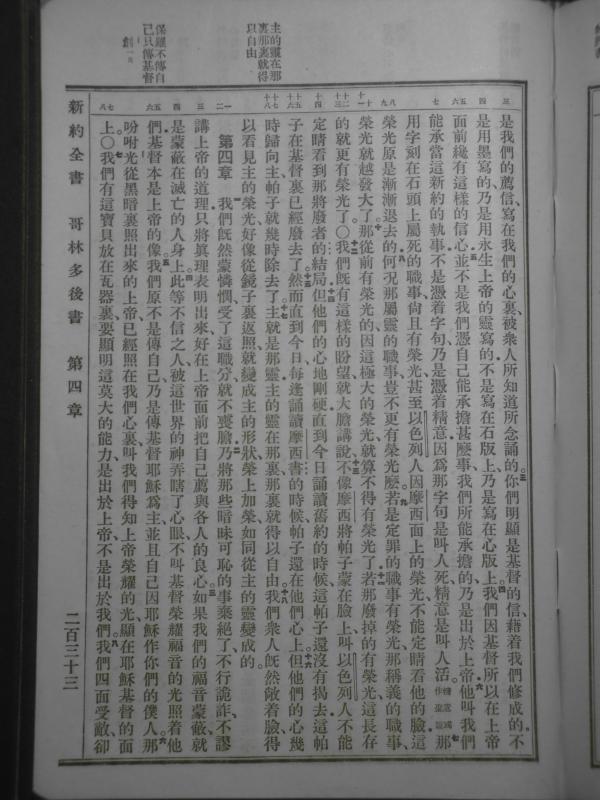 主的靈在那
裏那裏就得
以自由
保羅不傳自
己只傳基督
是我們的薦信寫在我們的心裏被衆人所知道所念誦的你們明顯是基督的信藉着我們修成的不
是用墨寫的乃是用永生上帝的靈寫的不是寫在石版上乃是寫在心版上我們因基督所以在上帝
面前纔有這樣的信心並不是我們憑自己能承擔甚麽事我們所能承擔的乃是出於上帝他叫我們
能承當這新約的執事不是憑着字句乃是憑着精意因爲那字句是叫人死精意是叫人活那
用字刻在石頭上屬死的職事尙且有榮光甚至以色列人因摩西面上的榮光不能定睛看他的臉這
榮光原是漸漸退去的何况那屬靈的職事豈不更有榮光麽若是定罪的職事有榮光那稱義的職事
榮光就越發大了那從前有榮光的因這極大的榮光就算不得有榮光了若那廢掉的有榮光這長存
的就更有榮光了〇我們旣有這樣的盼望就大膽講說不像摩西將帕子蒙在臉上叫以色列人不能
定睛看到那將廢者的結局但他們的心地剛硬直到今日誦讀舊約的時候這帕子還沒有揭去這帕
子在基督裏已經廢去了然而直到今日每逢誦讀摩西書的時候帕子還在他們心上但他們的心幾
時歸向主帕子就幾時除去了主就是那靈主的靈在那裏那裏就得以自由我們衆人旣然敞着臉得
以看見主的榮光好像從鏡子裏返照就變成主的形狀榮上加榮如同從主的靈變成的
第四章 我們旣然蒙憐憫受了這職分就不喪膽乃將那些暗昧可恥的事棄絕了不行詭詐不謬
講上帝的道理只將眞理表明出來好在上帝面前把自己薦與各人的良心如果我們的福音蒙蔽就
是蒙蔽在滅亡的人身上此等不信之人被這世界的神弄瞎了心眼不叫基督榮耀福音的光照着他
們基督本是上帝的像我們原不是傳自己乃是傳基督耶穌爲主並且自己因耶穌作你們的僕人那
吩咐光從黑暗裏照出來的上帝已經照在我們心裏叫我們得知上帝榮耀的光顯在耶穌基督的面
上〇我們有這寶貝放在瓦器裏要顯明這莫大的能力是出於上帝不是出於我們我們四面受敵卻
新約全書 哥林多後書 第四章 二百三十三